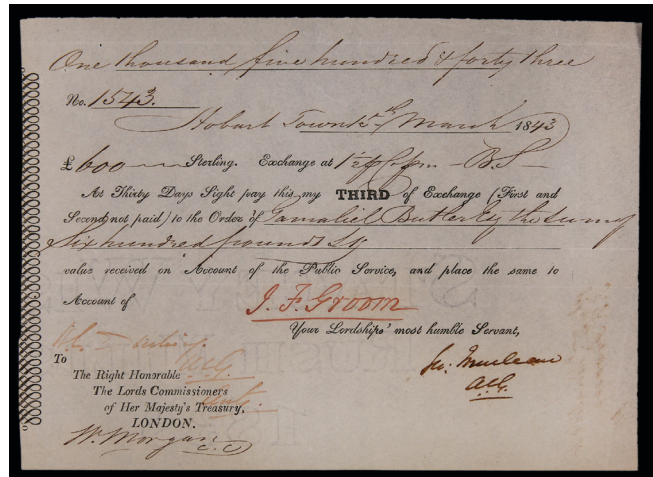 One thousand five hundred & forty three
No. 1543.
Hobart Town 5th March 1843
£600 Sterling. Exchange at 1½ p Ct pm - B.S
At Thirty Days Sight pay this my THIRD of Exchange (First and
Second not paid) to the Order of Gamaliel Butler Esq the sum of
Six hundred pounds Stg
value received on Account of the Public Service, and place the same to
Account of
J. F. Groom
Your Lordships' most humble Servant,
To
ACG
The Right Honorable
The Lords Commissioners
of Her Majesty's Treasury,
LONDON.
W. Morgan
C.C